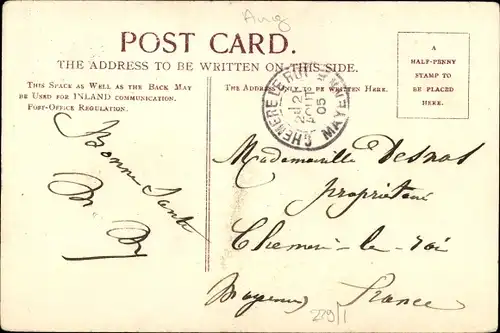 Aug
POST CARD.
THE ADDRESS TO BE WRITTEN ON THIS SIDE.
THIS SPACE AS WELL AS THE BACK MAY
BE USED FOR INLAND COMMUNICATION.
POST-OFFICE REGULATION.
THE ADDRESS ONLY TO BE WRITTEN HERE.
A
HALF-PENNY
STAMP TO
BE PLACED
HERE.
CHEMERE-LE-ROI
MAYENNE
05
Bonne Santé
Mademoiselle Desnos
propriétaire
Chemeré-le-roi
Mayenne France
229/1